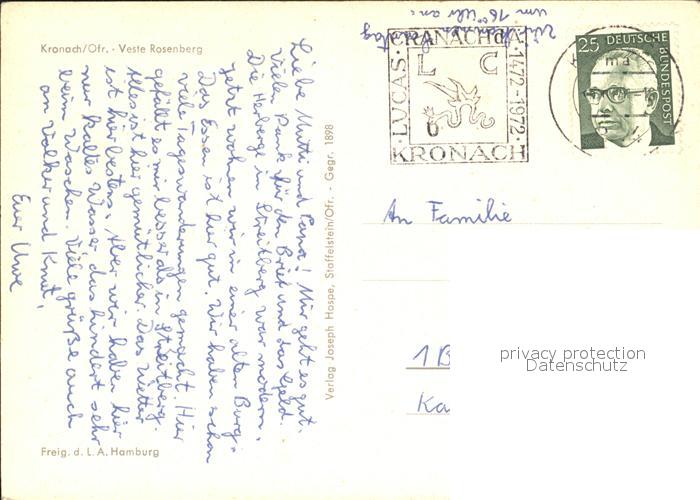 Kronach/Ofr. - Veste Rosenberg
Liebe Mutti und Papa! Mir geht es gut.
Vielen Dank für den Brief und das Geld.
Die Herberge in Streitberg war modern,
jetzt wohnen wir in einer alten Burg.
Das Essen ist hier gut. Wir haben schon
viele Tageswanderungen gemacht. Hier
gefällt es mir besser als in Streitberg.
Alles ist hier gemütlicher. Das Wetter
ist hier bestens. Aber wir haben hier
nur kaltes Wasser, das hindert sehr
beim Waschen. Viele Grüße auch
an Volker und Knut,
Euer Uwe
Freig. d. L. A. Hamburg
Verlag Joseph Hospe, Staffelstein/Ofr. - Gegr. 1898
um 16⁰⁰ Uhr an.
LUCAS · CRANACH d.Ä. · 1472-1972
L C
KRONACH
25 DEUTSCHE BUNDESPOST
An Familie
1 B
Ka
privacy protection
Datenschutz